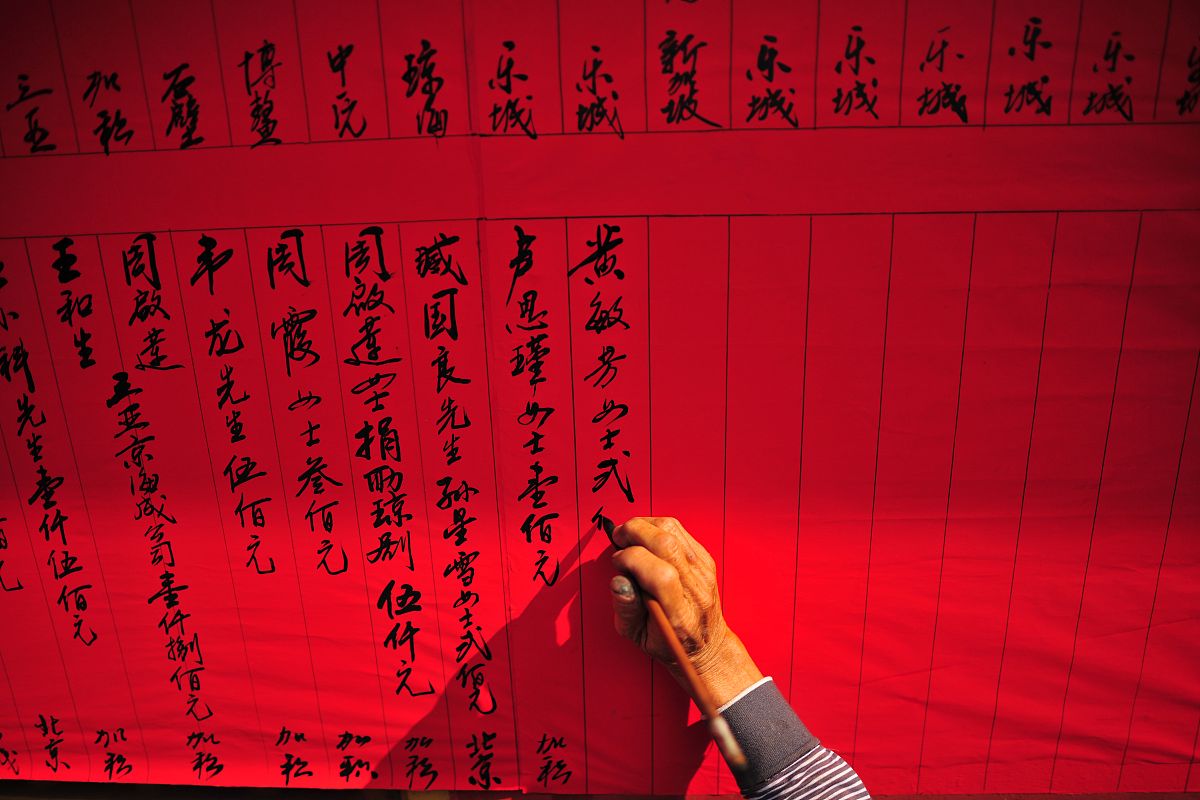 三亚
加积
石壁
博鳌
中元
琼海
乐城
乐城
新加坡
乐城
乐城
乐城
乐城
乐城
小科先生壹仟伍佰元
王和生
周啟莲 三亚京海成公司壹仟捌佰元
韦龙先生伍佰元
周霞女士叁佰元
周啟莲女士捐助琼剧伍仟元
臧国良先生孙星雪女士弍佰元
卢思瑾女士壹佰元
黄敏芳女士弍
北京
加积
加积
加积
加积
加积
北京
加积